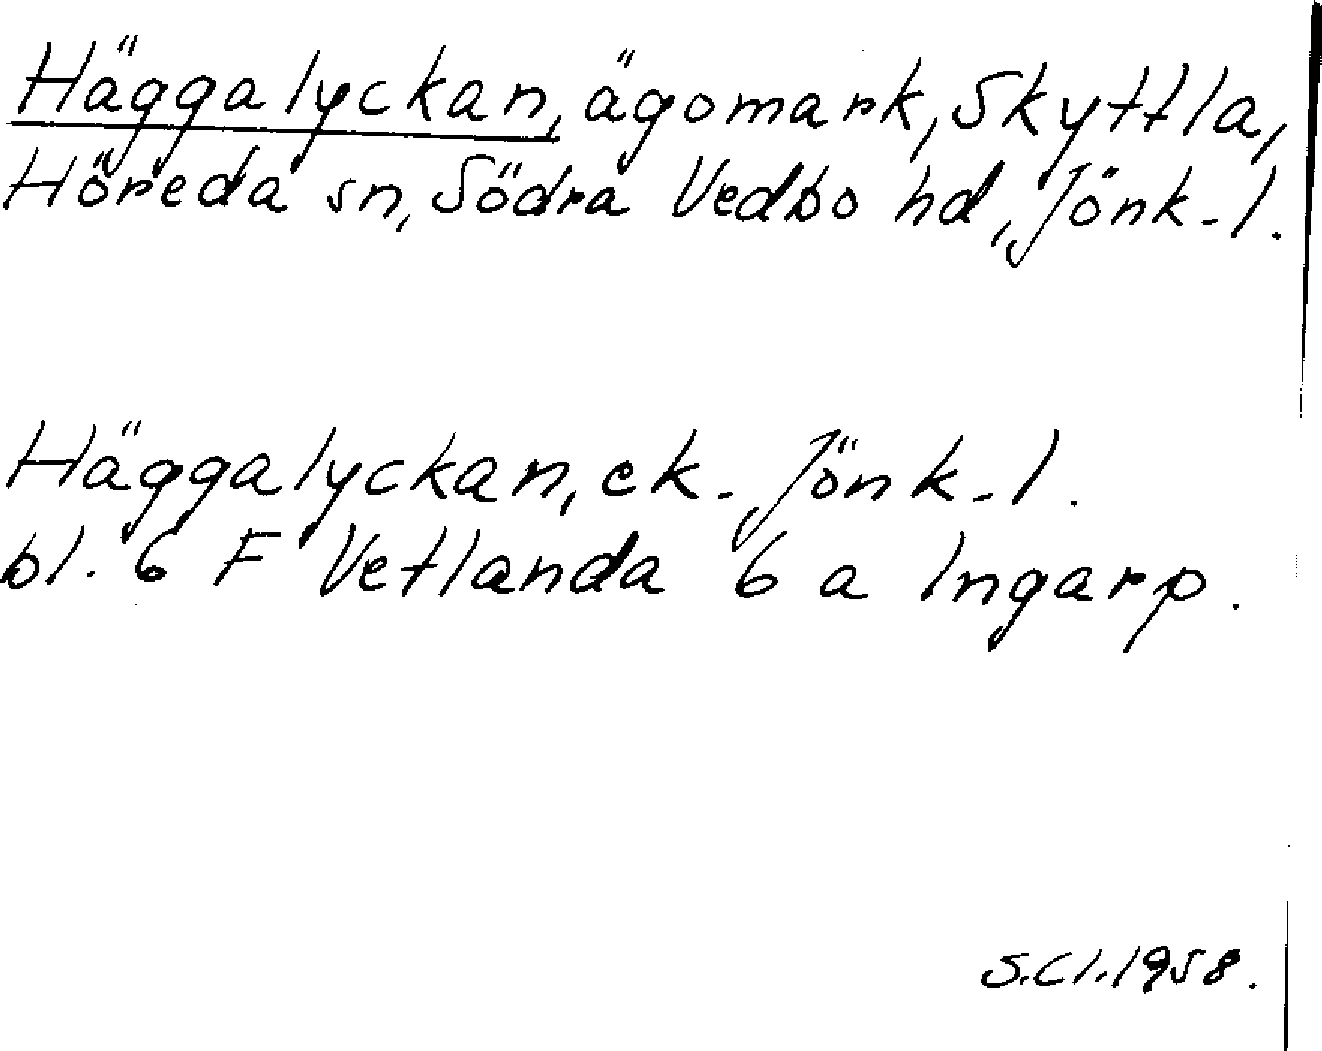 Häggalyckan, ägomark, Skyttla,
Höreda sn, Södra Vedbo hd, Jönk-l.
Häggalyckan, ek- Jönk-l.
bl. 6 F Vetlanda 6 a Ingarp.
S.Cl.1958.